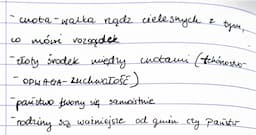 - cnota - walka rządz cielesnych z tym,
co mówi rozsądek
- złoty środek między cnotami (tchórzostwo
- ODWAGA - zuchwałość)
- państwo tworzy się samoistnie
- rodziny są ważniejsze od gmin czy państw